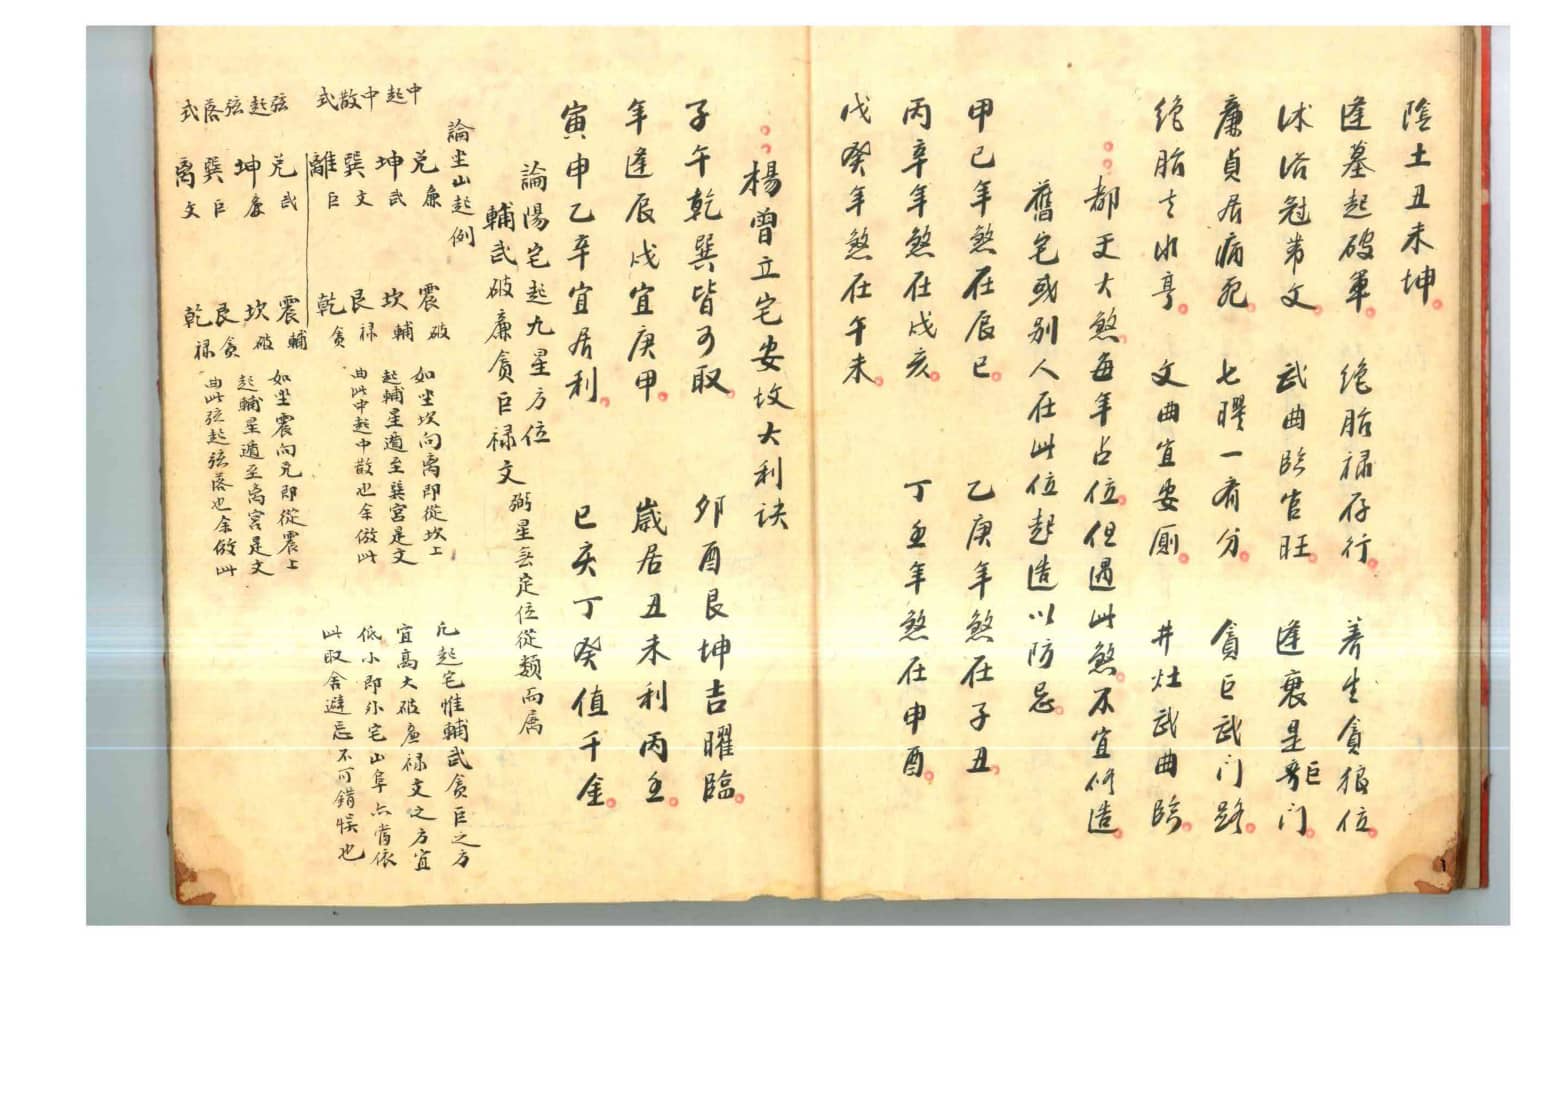 陰土丑未坤
逢墓起破軍 絶胎祿存行 養生貪狼位
沐浴冠帯文 武曲臨官旺 逢衰是巨門
廉貞居病死 七曜一肴分 貪巨武門路
絶胎去水亨 文曲宜安厠 井灶武曲臨
都天大煞每年占位但遇此煞不宜修造
舊宅或别人在此位起造以防忌
甲己年煞在辰巳 乙庚年煞在子丑
丙辛年煞在戌亥 丁壬年煞在申酉
戊癸年煞在午未
楊曾立宅安坟大利訣
子午乾巽皆可取 卯酉艮坤吉曜臨
年逢辰戌宜庚甲 歲居丑未利丙壬
寅申乙辛宜居利 巳亥丁癸值千金
論陽宅起九星方位
輔武破廉貪巨禄文 弼星無定位從類而属
論坐山起例
中起中散式
兑廉 震破
坤武 坎輔
巽文 艮禄
離巨 乾貪
如坐坎向离即從坎上
起輔星遁至巽宫是文
曲此中起中散也余倣此
凡起宅惟輔武貪巨之方
宜高大破廉禄文之方宜
低小即外宅山阜亦當依
此取舍避忌不可錯悮也
弦起弦落式
兑武 震輔
坤廉 坎破
巽巨 艮貪
离文 乾禄
如坐震向兑即從震上
起輔星遁至离宫是文
曲此弦起弦落也余倣此